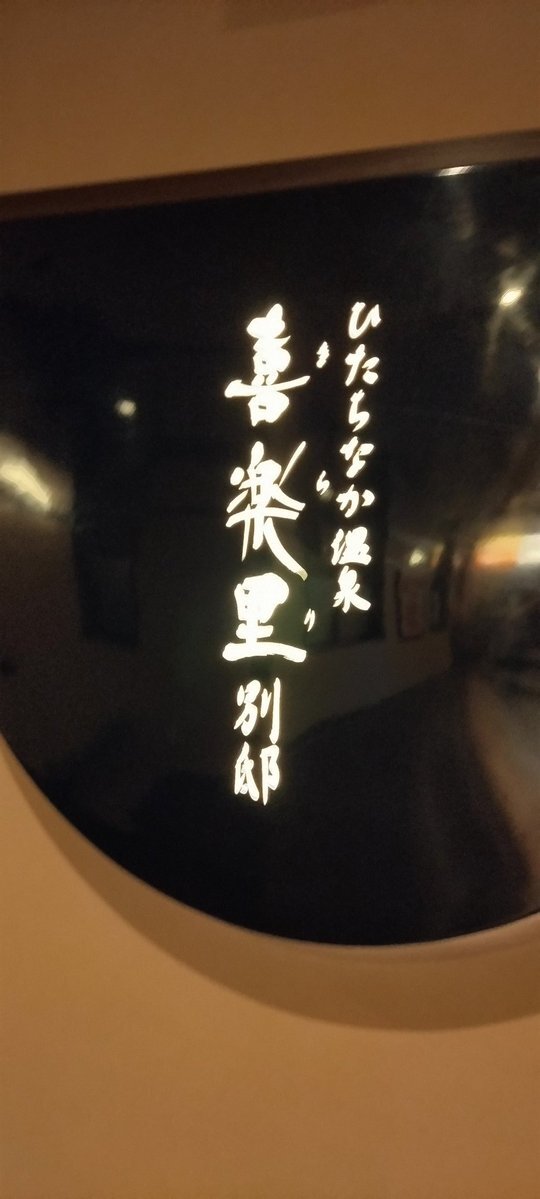 ひたちなか温泉
喜楽里別邸
きらり